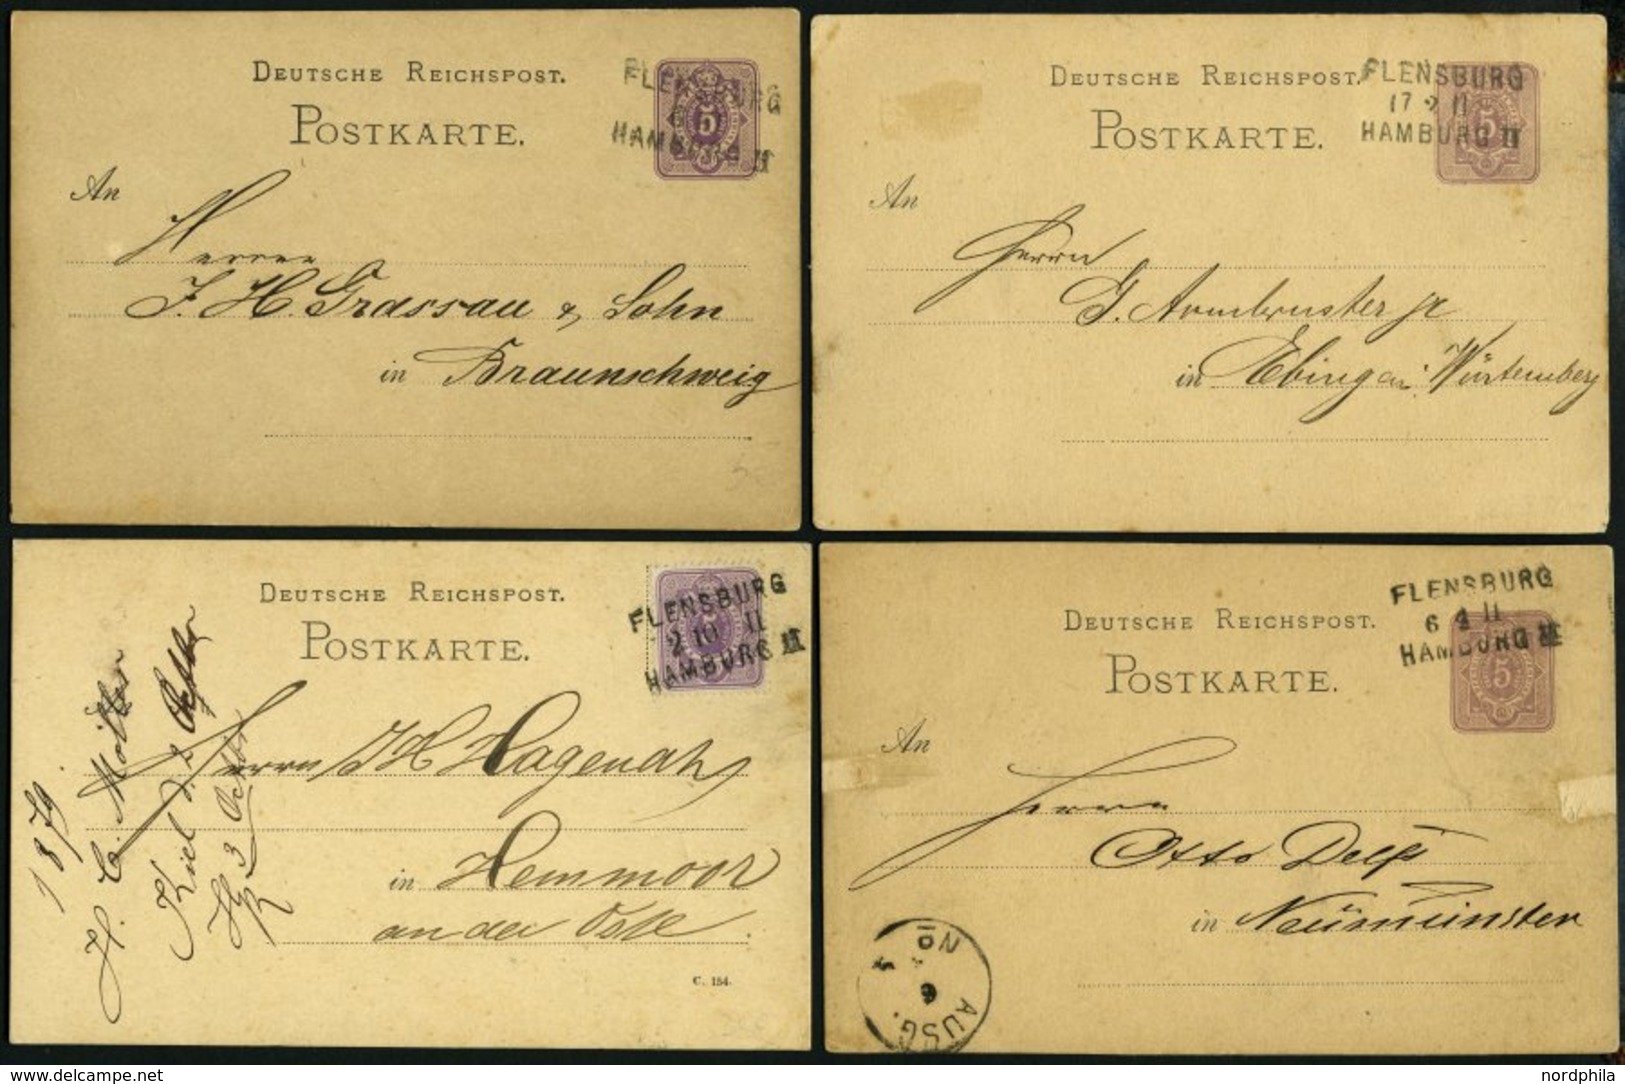 DEUTSCHE REICHSPOST.
POSTKARTE.
FLENSBURG
HAMBURG II
5
An
Herren
J. H. Grassau & Sohn
in Braunschweig
DEUTSCHE REICHSPOST.
POSTKARTE.
FLENSBURG
17 2 II
HAMBURG II
5
An
Herrn
G. Armbruster jr
in Ebingen Würtemberg
DEUTSCHE REICHSPOST.
POSTKARTE.
FLENSBURG
2 10 II
HAMBURG II
5
Herrn J H Hagenah
in Hemmoor
an der Oste.
C. 154.
1879.
H. C. Möller
Kiel d. 2
3
DEUTSCHE REICHSPOST.
POSTKARTE.
FLENSBURG
6 4 II
HAMBURG III
5
An
Herrn
Otto Delfs
in Neümünster
AUSG.
6
www.delcampe.net
nordphila